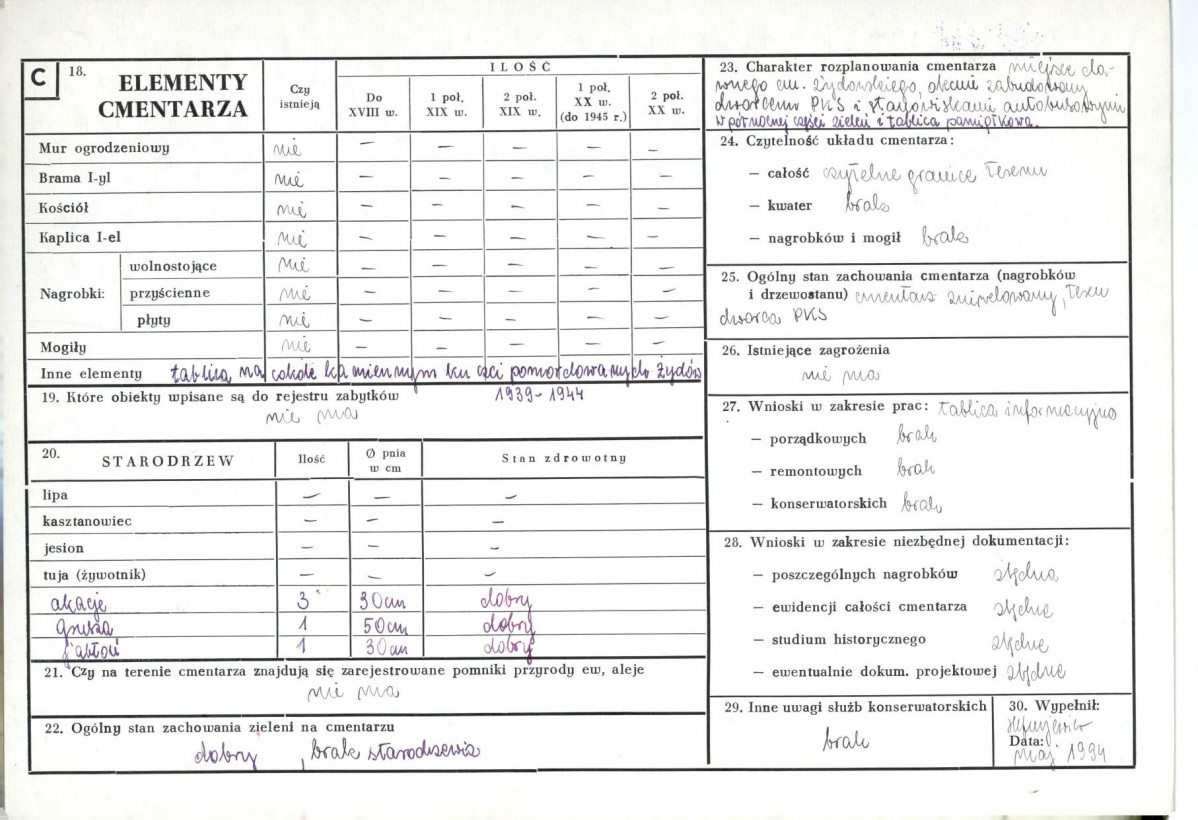 C
18. ELEMENTY CMENTARZA
Czy istnieją
ILOŚĆ
Do XVIII w.
1 poł. XIX w.
2 poł. XIX w.
1 poł. XX w. (do 1945 r.)
2 poł. XX w.
Mur ogrodzeniowy nie — — — — —
Brama I-yl nie — — — — —
Kościół nie — — — — —
Kaplica I-el nie — — — — —
Nagrobki:
wolnostojące nie — — — — —
przyścienne nie — — — — —
płyty nie — — — — —
Mogiły nie — — — — —
Inne elementy tablica na cokole kamiennym ku czci pomordowanych Żydów
1939-1944
19. Które obiekty wpisane są do rejestru zabytków
nie ma
20. STARODRZEW Ilość Ø pnia w cm Stan zdrowotny
lipa — — —
kasztanowiec — — —
jesion — — —
tuja (żywotnik) — — —
akacje 3 30cm dobry
grusza 1 50cm dobry
jabłoń 1 30cm dobry
21. Czy na terenie cmentarza znajdują się zarejestrowane pomniki przyrody ew, aleje
nie ma
22. Ogólny stan zachowania zieleni na cmentarzu
dobry, brak starodrzewia
23. Charakter rozplanowania cmentarza miejsce da-
wnego cm. żydowskiego, obecnie zabudowany
dworcem PKS i stanowiskami autobusowymi
w północnej części zieleń i tablica pamiątkowa.
24. Czytelność układu cmentarza:
— całość czytelne granice terenu
— kwater brak
— nagrobków i mogił brak
25. Ogólny stan zachowania cmentarza (nagrobków
i drzewostanu) cmentarz zniwelowany, teren
dworca PKS
26. Istniejące zagrożenia
nie ma
27. Wnioski w zakresie prac: tablica informacyjna
— porządkowych brak
— remontowych brak
— konserwatorskich brak
28. Wnioski w zakresie niezbędnej dokumentacji:
— poszczególnych nagrobków zbędna
— ewidencji całości cmentarza zbędne
— studium historycznego zbędne
— ewentualnie dokum. projektowej zbędne
29. Inne uwagi służb konserwatorskich
brak
30. Wypełnił:
Data:
maj 1994